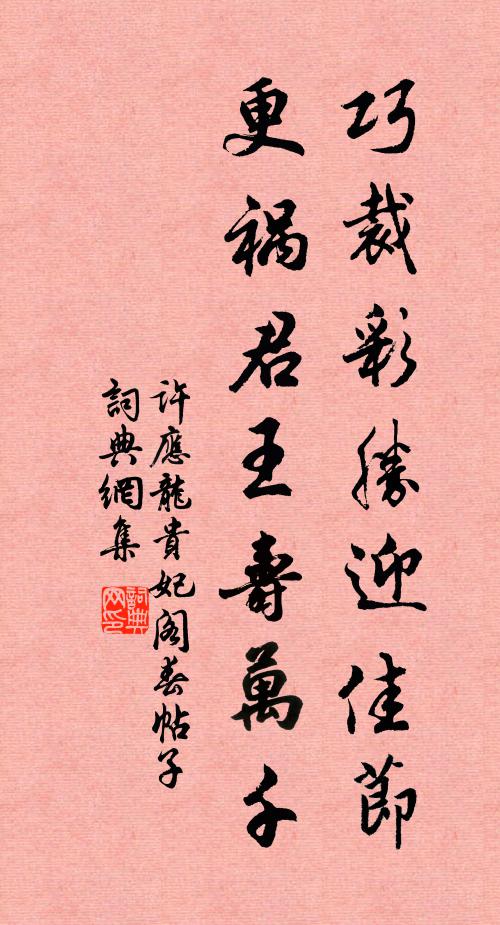 巧裁彩勝迎佳節
更祸君王壽萬千
許應龍貴妃阁春帖子
詞典網集
詞典网印